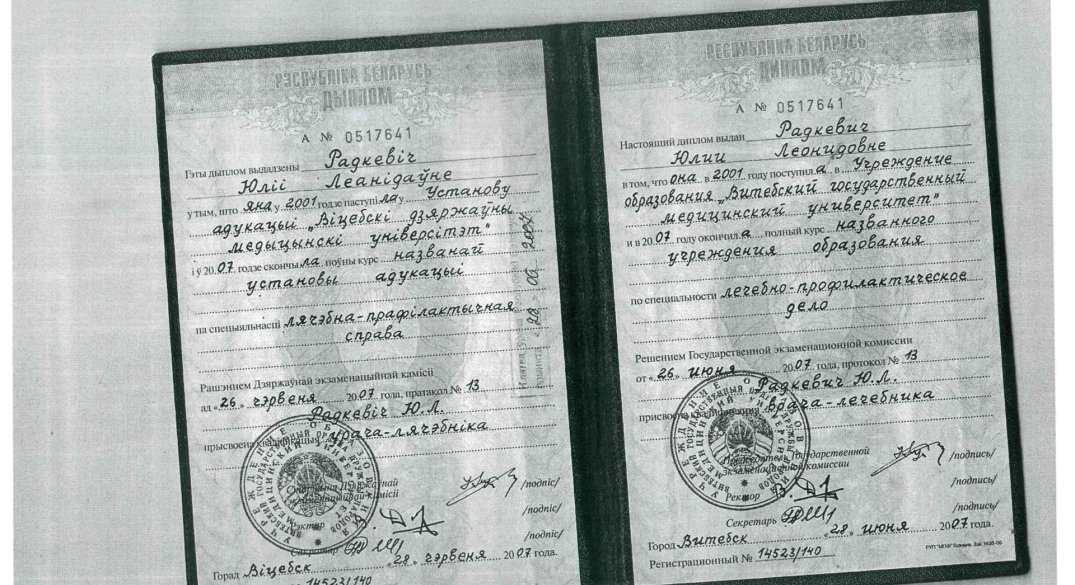 РЭСПУБЛІКА БЕЛАРУСЬ
ДЫПЛОМ
А № 0517641
Гэты дыплом выдадзены Радкевіч
Юліі Леанідаўне
у тым, што яна ў 2001 годзе паступіла ў Установу
адукацыі „Віцебскі дзяржаўны
медыцынскі універсітэт"
і ў 2007 годзе скончыла поўны курс названай
установы адукацыі
па спецыяльнасці лячэбна-прафілактычная
справа
Рашэннем Дзяржаўнай экзаменацыйнай камісіі
ад «26» чэрвеня 2007 года, пратакол № 13
Радкевіч Ю.Л.
прысвоена кваліфікацыя урача-лячэбніка
/подпіс/
/подпіс/
/подпіс/
Горад Віцебск «28» чэрвеня 2007 года.
14523/140
РЕСПУБЛИКА БЕЛАРУСЬ
ДИПЛОМ
А № 0517641
Настоящий диплом выдан Радкевич
Юлии Леонидовне
в том, что она в 2001 году поступила в Учреждение
образования „Витебский государственный
медицинский университет"
и в 2007 году окончила полный курс названного
учреждения образования
по специальности лечебно-профилактическое
дело
Решением Государственной экзаменационной комиссии
от «26» июня 2007 года, протокол № 13
Радкевич Ю.Л.
присвоена квалификация врача-лечебника
Председатель Государственной
экзаменационной комиссии /подпись/
Ректор /подпись/
Секретарь /подпись/
Город Витебск «28» июня 2007 года.
Регистрационный № 14523/140